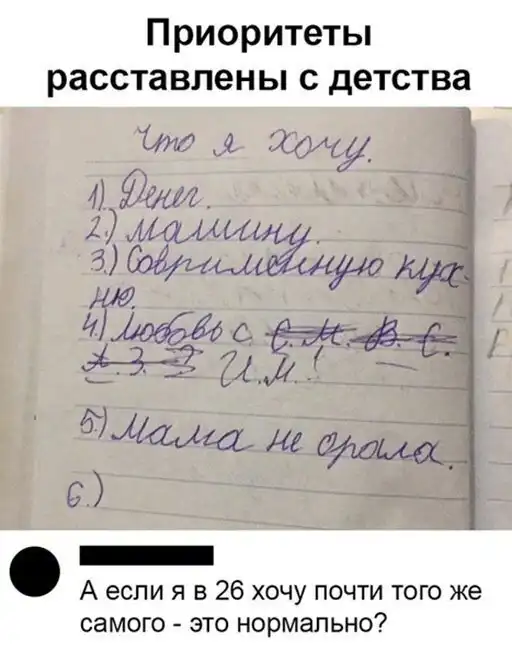 Приоритеты
расставлены с детства
Что я хочу.
1) Денег.
2.) Машину.
3.) Совримменную кух-
ню.
4) Любовь с Е. М. В. С.
А. З. З И.М.!
5.) Мама не орала.
6.)
А если я в 26 хочу почти того же
самого - это нормально?